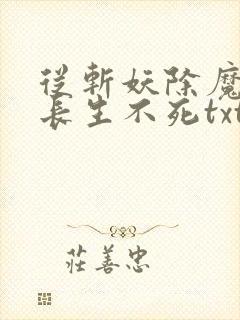 從斬妖除魔
長生不死txt
莊善忠